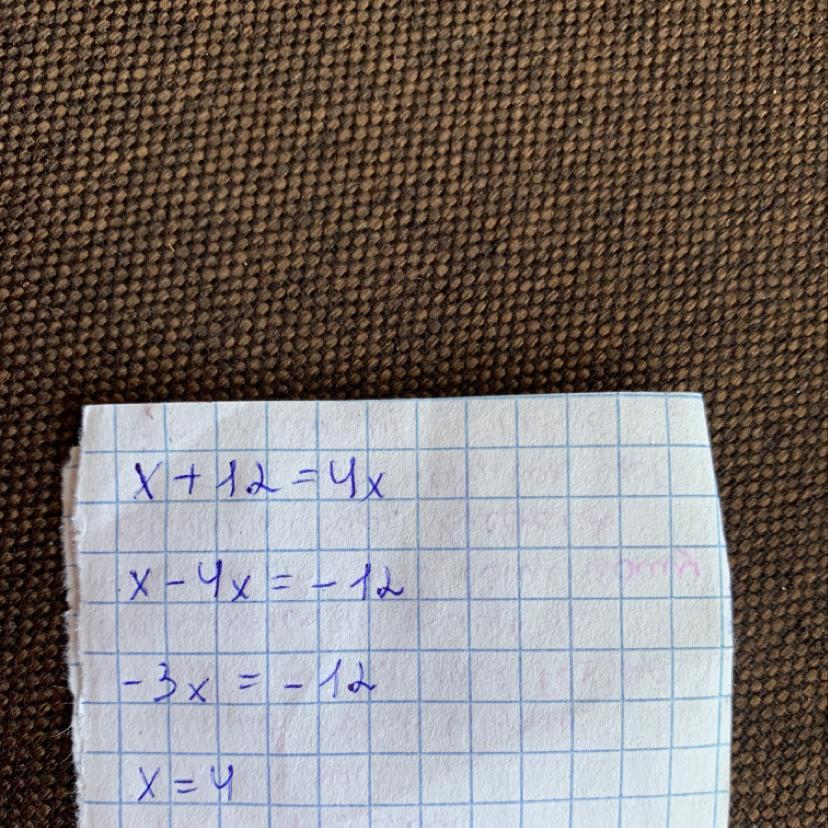 x + 12 = 4x
x - 4x = - 12
- 3x = - 12
x = 4